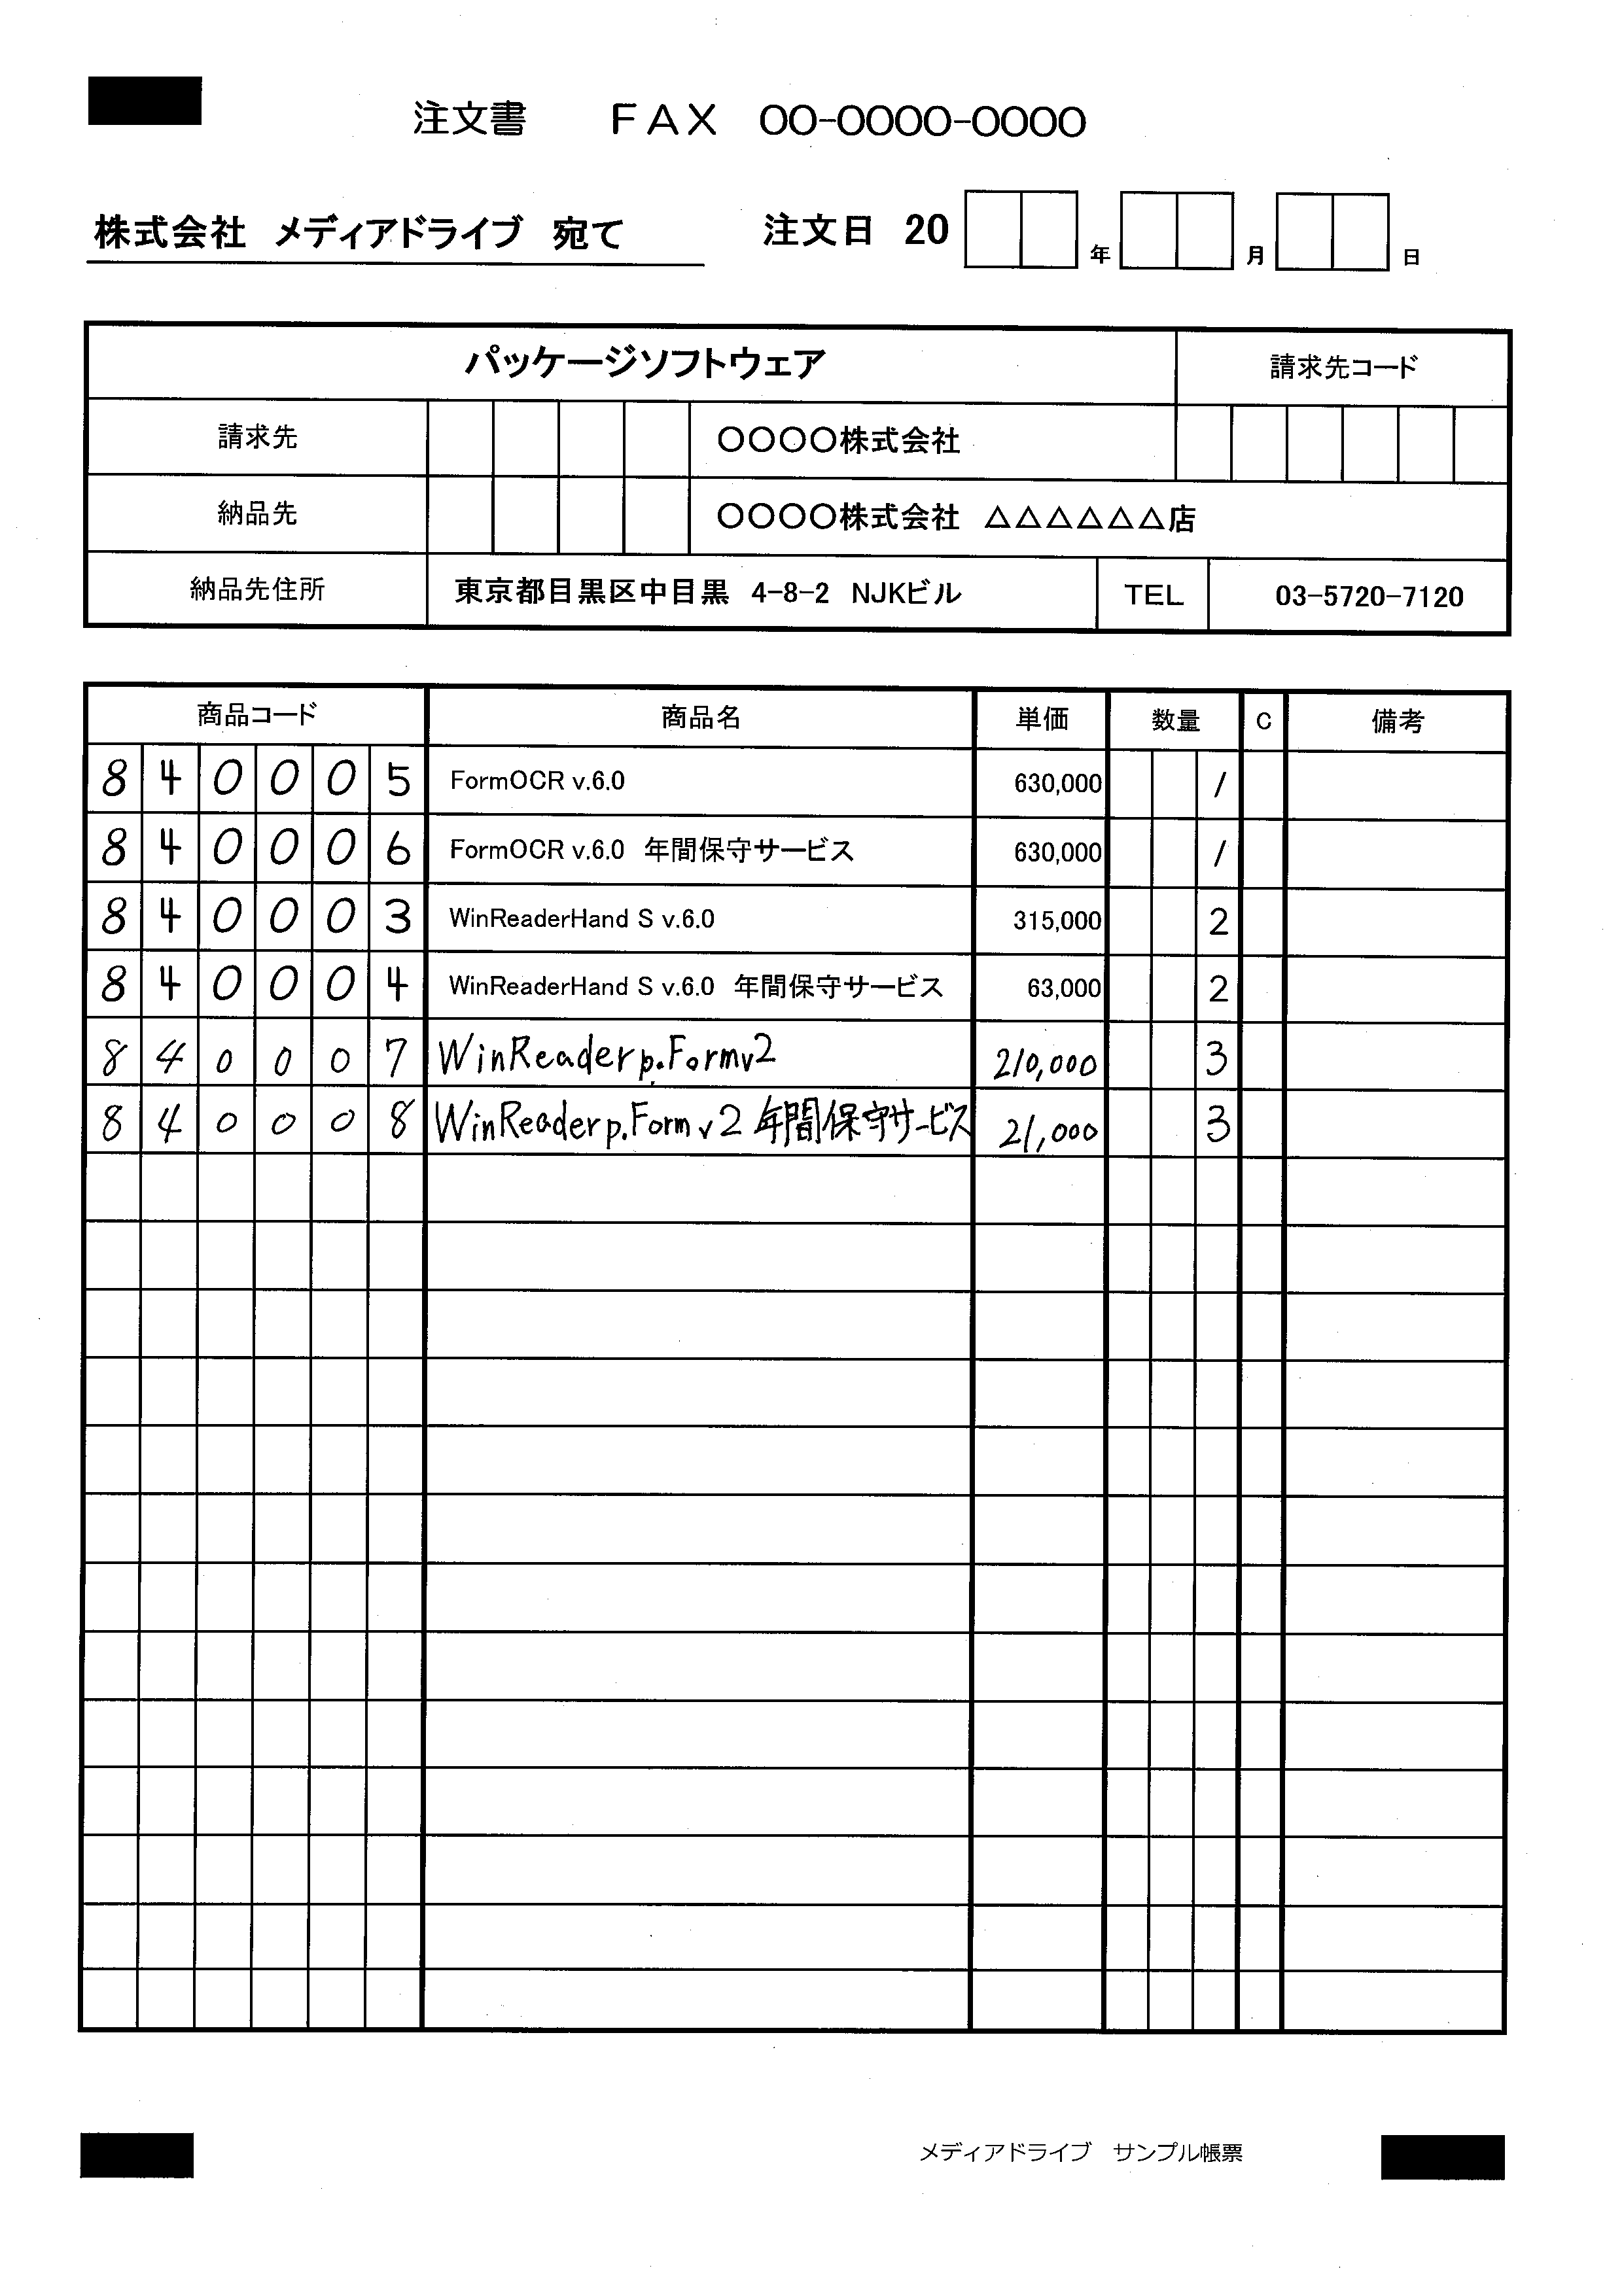 注文書 FAX 00-0000-0000
株式会社 メディアドライブ 宛て 注文日 20 年 月 日
パッケージソフトウェア 請求先コード
請求先 〇〇〇〇株式会社
納品先 〇〇〇〇株式会社 △△△△△△店
納品先住所 東京都目黒区中目黒 4-8-2 NJKビル TEL 03-5720-7120
商品コード 商品名 単価 数量 C 備考
840005 FormOCR v.6.0 630,000 1
840006 FormOCR v.6.0 年間保守サービス 630,000 1
840003 WinReaderHand S v.6.0 315,000 2
840004 WinReaderHand S v.6.0 年間保守サービス 63,000 2
840007 WinReader p.Form v2 210,000 3
840008 WinReader p.Form v2 年間保守サービス 21,000 3
メディアドライブ サンプル帳票